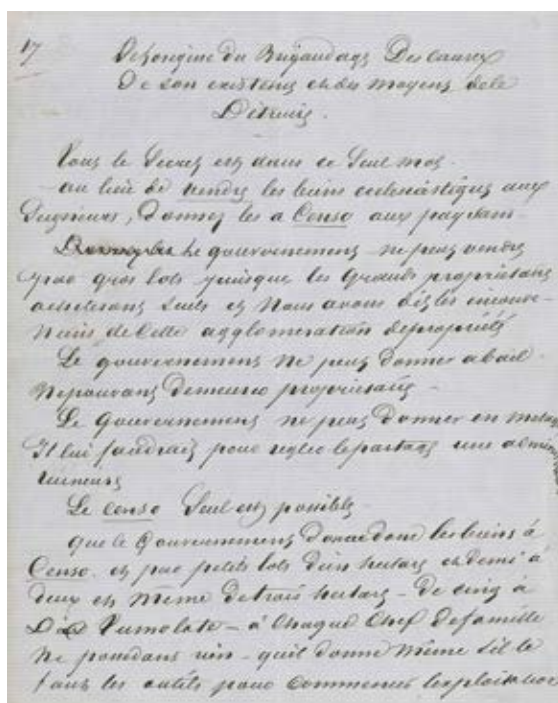 17
De l'origine du Brigandage Des causes
De son existence et des moyens de le
Détruire.
Tout le Secret est dans ce seul mot.
au lieu de vendre les biens ecclésiastiques aux
Seigneurs, donnez les a Censo aux paysans.
Le gouvernement ne peut vendre
que gros lots puisque les grands propriétaires
acheteront seuls et Nous avons dit les inconve-
niens de cette agglomeration de propriétés
Le gouvernement ne peut donner a bail
Ne pouvant demeurer propriétaire -
Le Gouvernement ne peut donner en
Il lui faudrait pour regler le partage une
ruineuse
Le censo Seul est possible
que le Gouvernement donne donc les biens à
Censo. et par petits lots d'un hectare et demi à
deux et même de trois hectares - De cinq à
Dix Tumolate - à Chaque Chef de famille
Ne possedant rien - qu'il donne même s'il le
faut les outils pour commencer l'exploitation